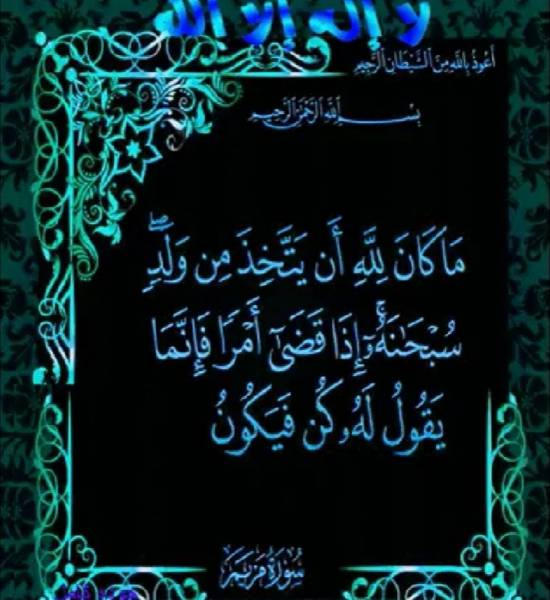 لا إله إلا الله
أعوذ بالله من الشيطان الرجيم
بسم الله الرحمن الرحيم
مَا كَانَ لِلَّهِ أَن يَتَّخِذَ مِن وَلَدٍۖ
سُبْحَٰنَهُۥٓۚ إِذَا قَضَىٰٓ أَمْرًا فَإِنَّمَا
يَقُولُ لَهُۥ كُن فَيَكُونُ
سُورَةُ مَرْيَم